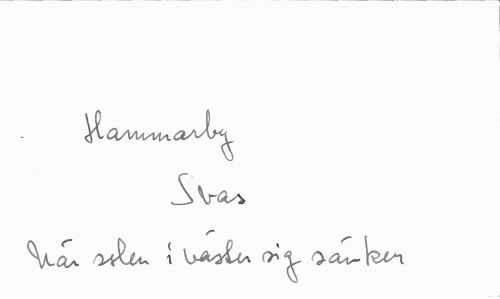 Hammarby
Svas
När solen i väster sig sänker